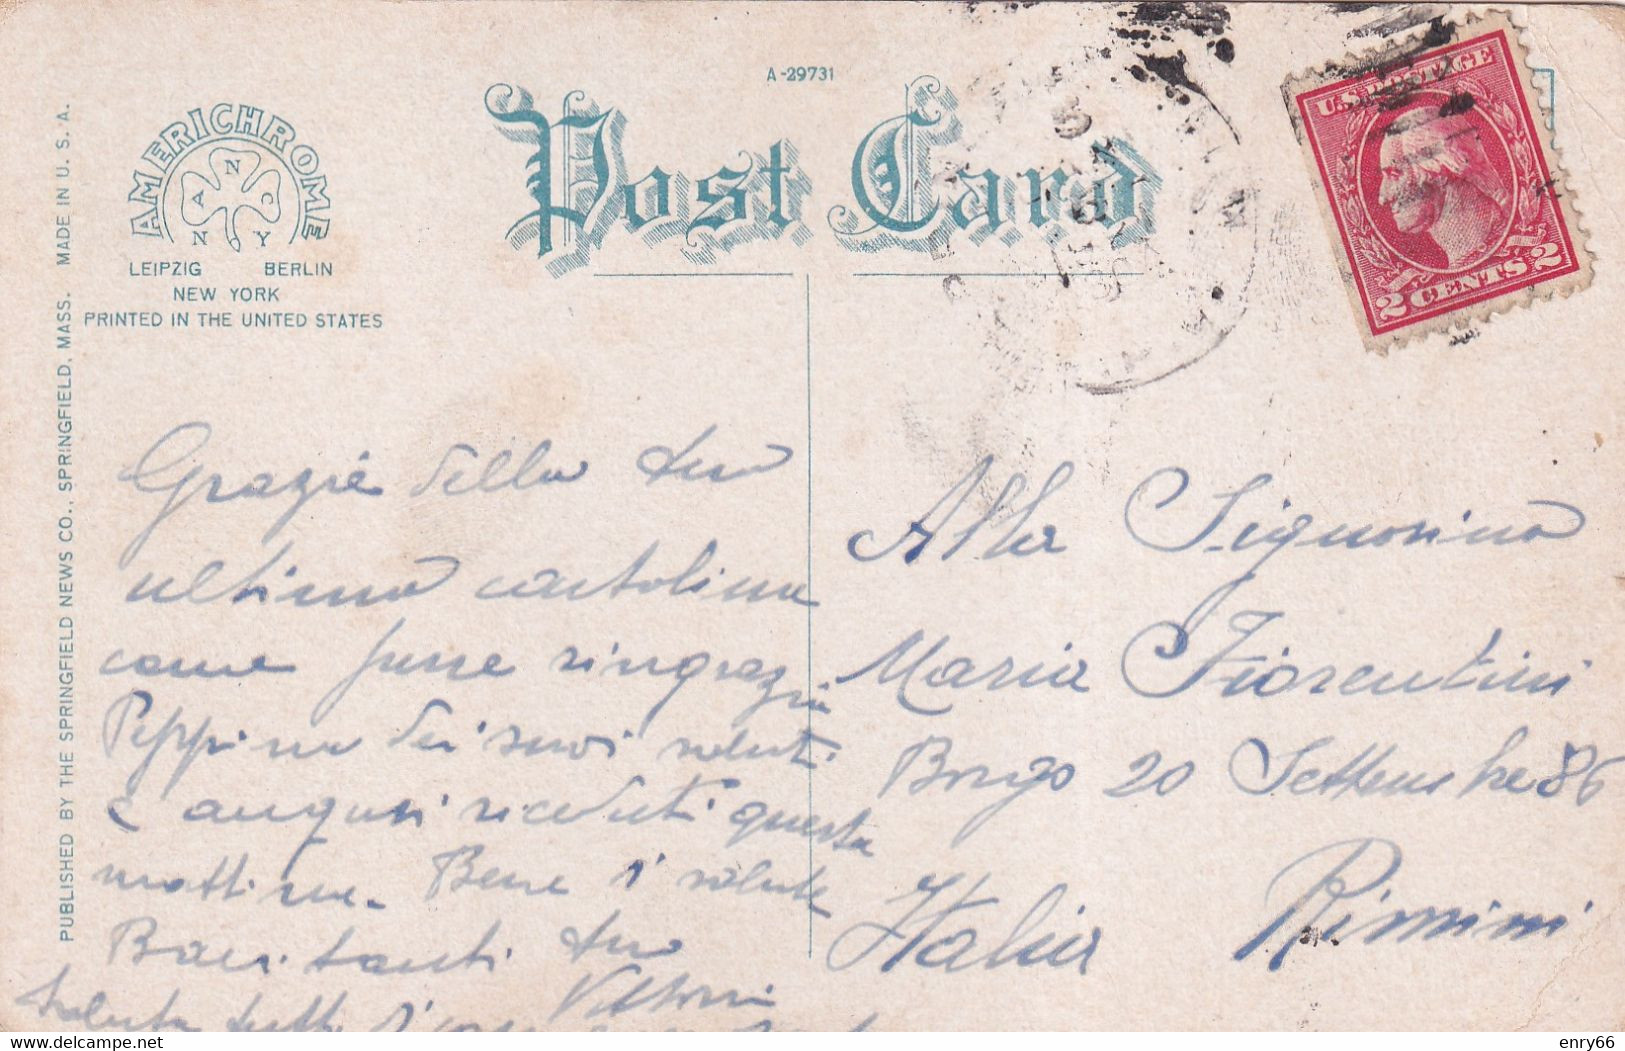 A-29731
Post Card
AMERICHROME
A N C
N Y
LEIPZIG BERLIN
NEW YORK
PRINTED IN THE UNITED STATES
PUBLISHED BY THE SPRINGFIELD NEWS CO., SPRINGFIELD, MASS. MADE IN U. S. A.
U.S. POSTAGE
2 CENTS 2
Grazie della tua
ultima cartolina
come pure ringrazia
Peppina dei suoi saluti
e auguri ricevuti questa
mattina. Bene i salute
Baci tanti tuo
Vittorio
Saluta tutti
Alla Signorina
Maria Fiorentini
Borgo 20 Settembre 86
Italia Rimini
enry66